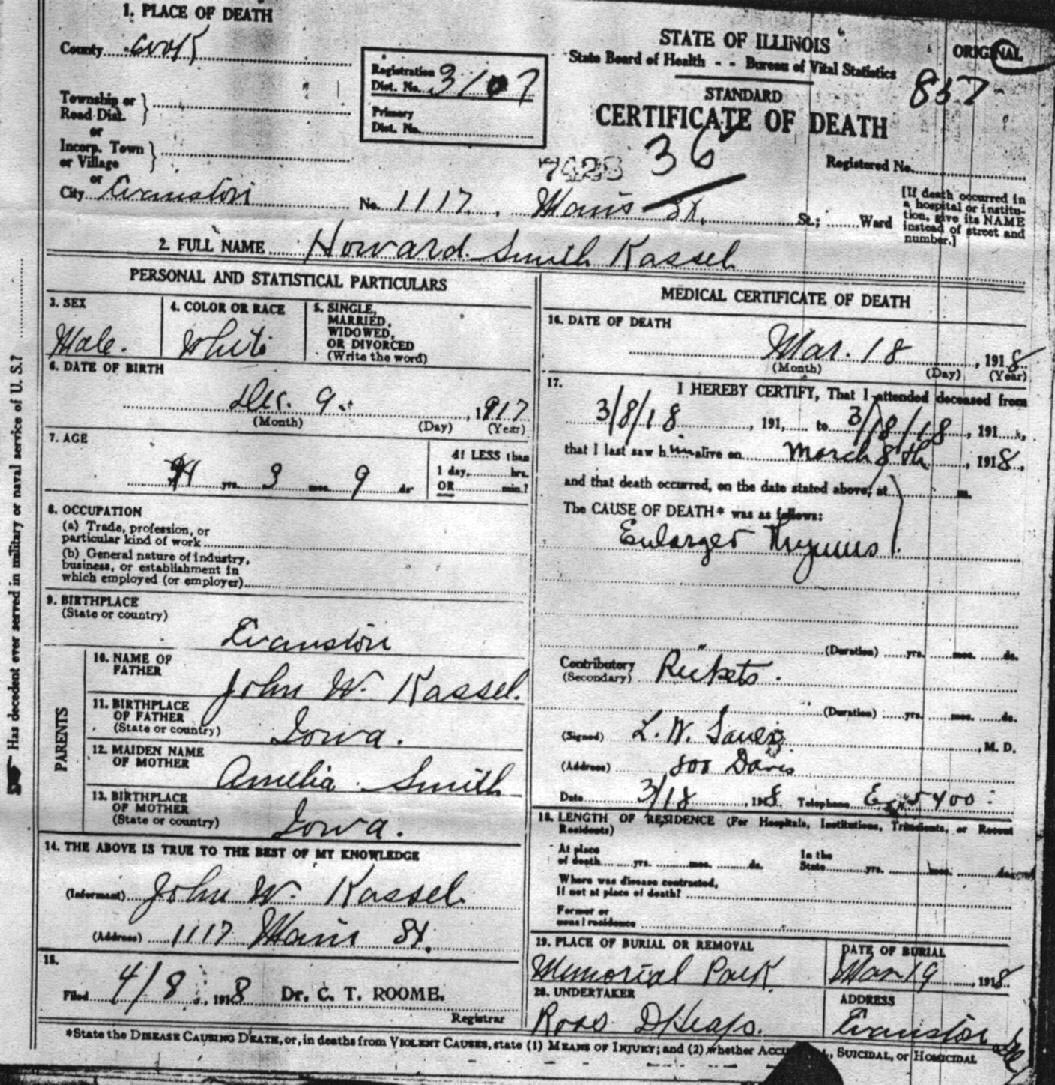 1. PLACE OF DEATH
County Cook
Township or
Road Dist.
or
Incorp. Town
or Village
or
City Evanston No. 1117 Main St. St.; Ward
Registration
Dist. No. 3107
Primary
Dist. No.
STATE OF ILLINOIS
State Board of Health - - Bureau of Vital Statistics
ORIGINAL
857
STANDARD
CERTIFICATE OF DEATH
7423 36
Registered No.
[If death occurred in
a hospital or institu-
tion, give its NAME
instead of street and
number.]
2. FULL NAME Howard Smith Kassel
PERSONAL AND STATISTICAL PARTICULARS
3. SEX
Male.
4. COLOR OR RACE
White
5. SINGLE,
MARRIED,
WIDOWED,
OR DIVORCED
(Write the word)
6. DATE OF BIRTH
Dec. 9. , 1917
(Month) (Day) (Year)
7. AGE
yrs. 3 mos. 9 ds.
If LESS than
1 day, hrs.
OR min.?
8. OCCUPATION
(a) Trade, profession, or
particular kind of work
(b) General nature of industry,
business, or establishment in
which employed (or employer)
9. BIRTHPLACE
(State or country)
Evanston
PARENTS
10. NAME OF
FATHER
John W. Kassel.
11. BIRTHPLACE
OF FATHER
(State or country)
Iowa.
12. MAIDEN NAME
OF MOTHER
Amelia Smith
13. BIRTHPLACE
OF MOTHER
(State or country)
Iowa.
14. THE ABOVE IS TRUE TO THE BEST OF MY KNOWLEDGE
(Informant) John W. Kassel.
(Address) 1117 Main St.
15.
Filed 4/8 , 1918 Dr. C. T. ROOME.
Registrar
MEDICAL CERTIFICATE OF DEATH
16. DATE OF DEATH
Mar. 18 , 1918
(Month) (Day) (Year)
17.
I HEREBY CERTIFY, That I attended deceased from
3/8/18 , 191 , to 3/18/18 , 191 ,
that I last saw him alive on March 8th , 1918,
and that death occurred, on the date stated above, at m.
The CAUSE OF DEATH* was as follows:
Enlarged Thymus
(Duration) yrs. mos. ds.
Contributory
(Secondary)
Rickets.
(Duration) yrs. mos. ds.
(Signed) L. W. Sauer , M. D.
(Address) 800 Davis
Date 3/18 , 1918 Telephone 400
18. LENGTH OF RESIDENCE (For Hospitals, Institutions, Transients, or Recent
Residents)
At place
of death yrs. mos. ds.
In the
State yrs. mos.
Where was disease contracted,
If not at place of death?
Former or
usual residence
19. PLACE OF BURIAL OR REMOVAL
Memorial Park
DATE OF BURIAL
Mar 19 , 1918
20. UNDERTAKER
ADDRESS
Evanston
*State the DISEASE CAUSING DEATH, or, in deaths from VIOLENT CAUSES, state (1) MEANS OF INJURY; and (2) whether SUICIDAL, or HOMICIDAL
Has decedent ever served in military or naval service of U. S.?